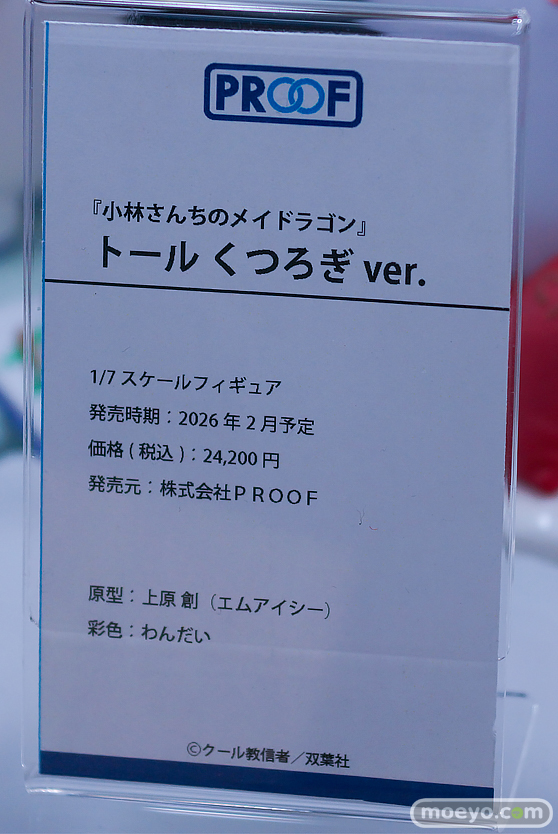 PROOF
『小林さんちのメイドラゴン』
トール くつろぎ ver.
1/7 スケールフィギュア
発売時期：2026 年 2 月予定
価格 ( 税込 )：24,200 円
発売元：株式会社ＰＲＯＯＦ
原型：上原 創（エムアイシー）
彩色：わんだい
©クール教信者／双葉社
moeyo.com